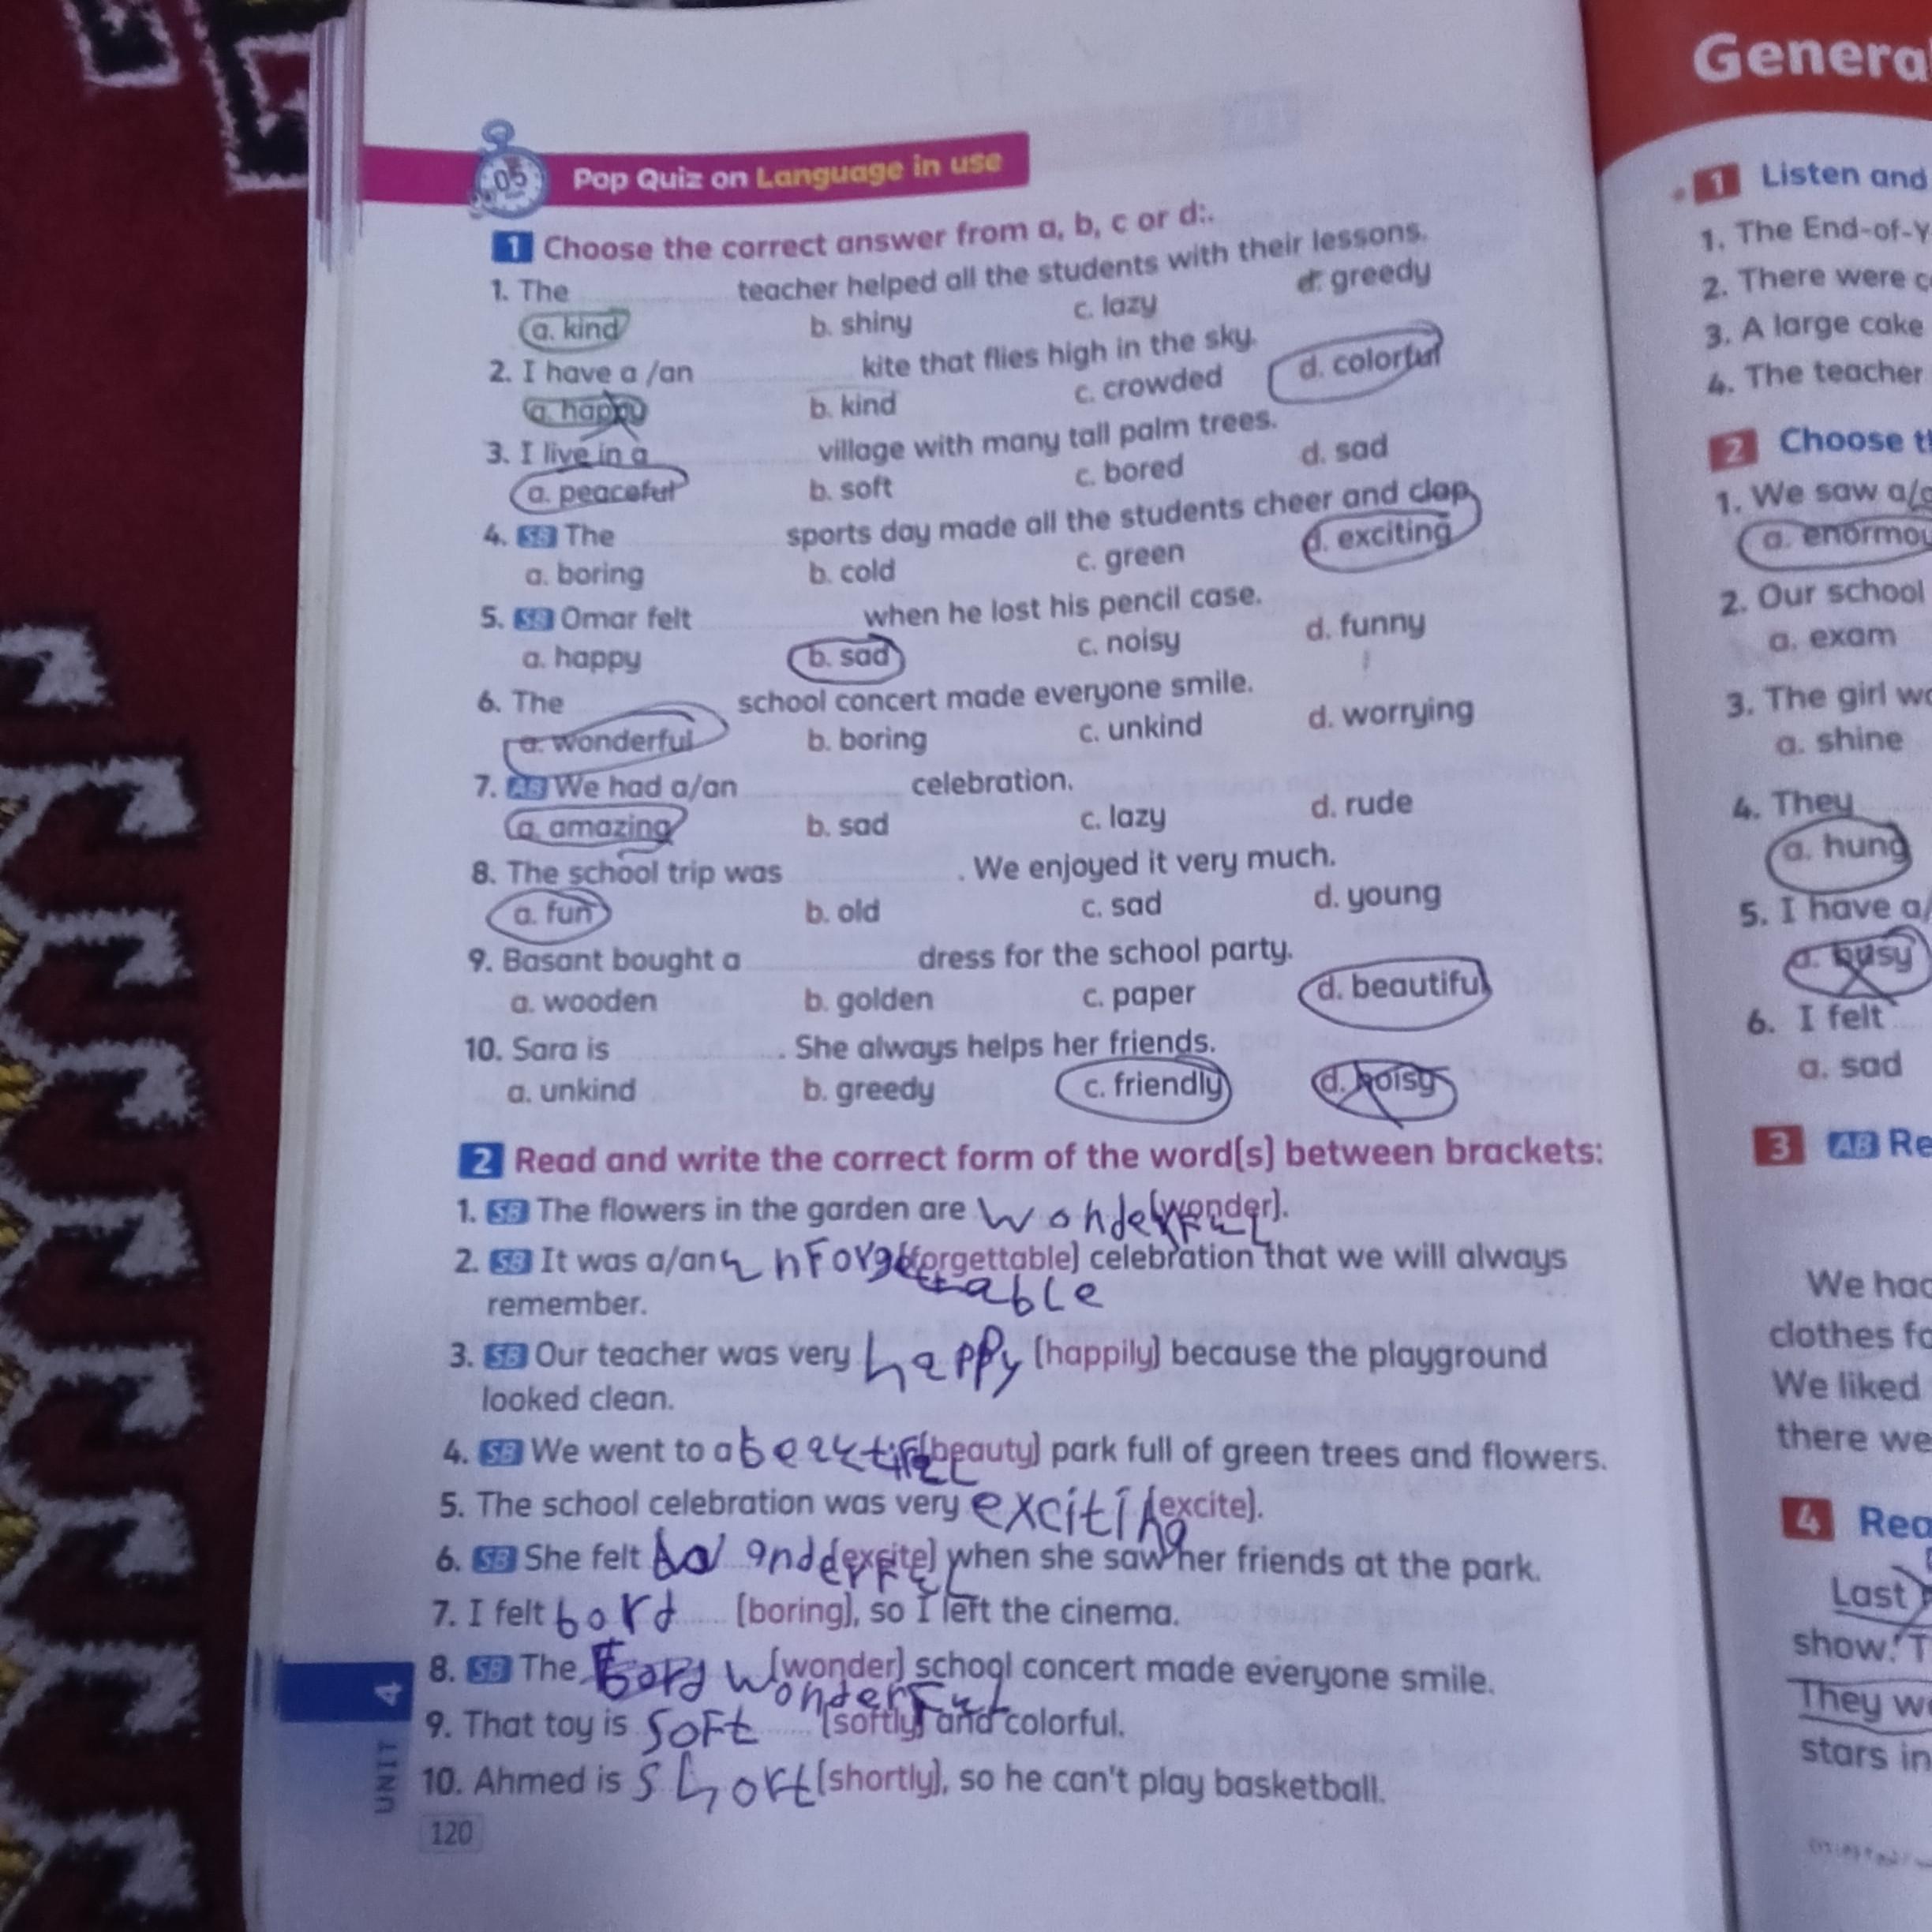 05
Pop Quiz on Language in use
1 Choose the correct answer from a, b, c or d:.
1. The teacher helped all the students with their lessons.
a. kind b. shiny c. lazy d. greedy
2. I have a /an kite that flies high in the sky.
a. happy b. kind c. crowded d. colorful
3. I live in a village with many tall palm trees.
a. peaceful b. soft c. bored d. sad
4. SB The sports day made all the students cheer and clap.
a. boring b. cold c. green d. exciting
5. SB Omar felt when he lost his pencil case.
a. happy b. sad c. noisy d. funny
6. The school concert made everyone smile.
a. wonderful b. boring c. unkind d. worrying
7. AB We had a/an celebration.
a. amazing b. sad c. lazy d. rude
8. The school trip was . We enjoyed it very much.
a. fun b. old c. sad d. young
9. Basant bought a dress for the school party.
a. wooden b. golden c. paper d. beautiful
10. Sara is . She always helps her friends.
a. unkind b. greedy c. friendly d. noisy
2 Read and write the correct form of the word(s) between brackets:
1. SB The flowers in the garden are wonderful (wonder).
2. SB It was a/an unforgettable (forgettable) celebration that we will always
remember.
3. SB Our teacher was very happy (happily) because the playground
looked clean.
4. SB We went to a beautiful (beauty) park full of green trees and flowers.
5. The school celebration was very exciting (excite).
6. SB She felt (excite) when she saw her friends at the park.
7. I felt bord (boring), so I left the cinema.
8. SB The wonderful (wonder) school concert made everyone smile.
9. That toy is soft (softly) and colorful.
10. Ahmed is short (shortly), so he can't play basketball.
UNIT 4
120
General
1 Listen and
1. The End-of-Y
2. There were
3. A large cake
4. The teacher
2 Choose
1. We saw
a. enormou
2. Our school
a. exam
3. The girl
a. shine
4. They
a. hung
5. I have a/
a. busy
6. I felt
a. sad
3 AB Re
We had
clothes
We liked
there we
4 Rea
Last
show. T
They
stars in